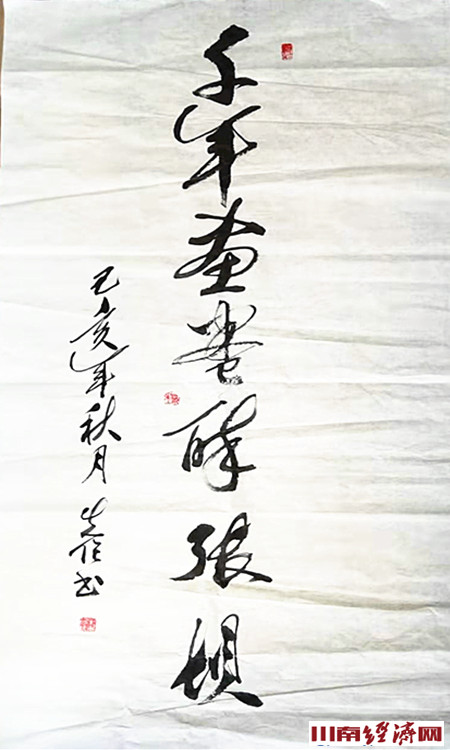 千年画卷醉张坝
己亥年秋月 书
川南经济网